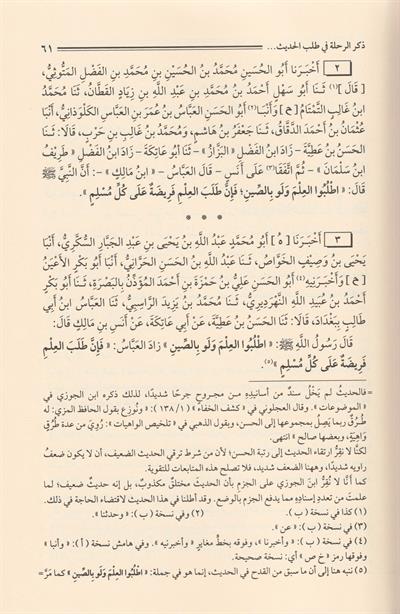 ذكر الرحلة في طلب الحديث... ٦١
٢ أَخْبَرَنا أَبُو الحُسَيْنِ مُحَمَّدُ بنُ الحُسَيْنِ بنِ مُحَمَّدِ بنِ الفَضْلِ المَتُّوثِيُّ،
[قَالَ](١) ثَنَا أَبُو سَهْلٍ أَحْمَدُ بنُ مُحَمَّدِ بنِ عَبْدِ اللَّهِ بنِ زِيَادٍ القَطَّانُ، ثَنَا مُحَمَّدُ
ابنُ غَالِبٍ التَّمْتَامُ [ح] وَأَنْبَا(٢) أَبُو الحَسَنِ العَبَّاسُ بنُ عُمَرَ بنِ العَبَّاسِ الكَلْوَذَانِيُّ، أَنْبَا
عُثْمَانُ بنُ أَحْمَدَ الدَّقَّاقُ، ثَنَا جَعْفَرُ بنُ هَاشِمٍ، وَمُحَمَّدُ بنُ غَالِبِ بنِ حَرْبٍ، قَالَا: ثَنَا
الحَسَنُ بنُ عَطِيَّةَ - زَادَ ابنُ الفَضْلِ «البَزَّازُ» - ثَنَا أَبُو عَاتِكَةَ - زَادَ ابنُ الفَضْلِ «طَرِيْفُ
ابنُ سَلْمَانَ» - ثُمَّ اتَّفَقَا(٣) عَلَى أَنَسٍ - قَالَ العَبَّاسُ - «ابنُ مَالِكٍ» -: أَنَّ النَّبِيَّ ﷺ
قَالَ: «اطْلُبُوا العِلْمَ وَلَو بِالصِّينِ؛ فَإِنَّ طَلَبَ العِلْمِ فَرِيضَةٌ عَلَى كُلِّ مُسْلِمٍ».
* * *
٣ أَخْبَرَنَا [هُ] أَبُو مُحَمَّدٍ عَبْدُ اللَّهِ بنُ يَحْيَى بنِ عَبْدِ الجَبَّارِ السُّكَّرِيُّ، أَنْبَا
يَحْيَى بنُ وَصِيفٍ الخَوَّاصُ، ثَنَا عَبْدُ اللَّهِ بنُ الحَسَنِ الحَرَّانِيُّ، أَنْبَا أَبُو بَكْرٍ الأَعْيَنُ
[ح] وَأَخْبَرَنِيهِ(٤) أَبُو الحَسَنِ عَلِيُّ بنُ حَمْزَةَ بنِ أَحْمَدَ المُؤَذِّنُ بِالبَصْرَةِ، ثَنَا أَبُو بَكْرٍ
أَحْمَدُ بنُ عُبَيْدِ اللَّهِ النَّهْرَدَيْرِيُّ، ثَنَا مُحَمَّدُ بنُ يَزِيدَ الرَّاسِبِيُّ، ثَنَا العَبَّاسُ ابنُ أَبِي
طَالِبٍ بِبَغْدَادَ، قَالَا: ثَنَا الحَسَنُ بنُ عَطِيَّةَ، عَنْ أَبِي عَاتِكَةَ، عَنْ أَنَسِ بنِ مَالِكٍ قَالَ:
قَالَ رَسُولُ اللَّهِ ﷺ: «اطْلُبُوا العِلْمَ وَلَو بِالصِّينِ» زَادَ العَبَّاسُ: «فَإِنَّ طَلَبَ العِلْمِ
فَرِيضَةٌ عَلَى كُلِّ مُسْلِمٍ»(٥).
= فالحديثُ لم يَخْلُ سندٌ من أسانيدِهِ مـن مجـروحٍ جرحًا شديدًا، لذلك ذكره ابن الجوزي في
«الموضوعات». وقال العجلوني في «كشف الخفاء» (١/١٣٨): «ونُوزِع بقول الحافظ المزي: له
طُـرُقٌ ربما يَصِلُ بمجموعها إلى الحسن، وبقول الذهبي في «تلخيص الواهيات»: رُوِيَ من عدة طُرُقٍ
وَاهِيَةٍ، وبعضها صالح» انتهى.
لكنَّا لا نقِرُّ ارتقاء الحديث إلى رتبة الحسن؛ لأن من شرط ترقي الحديث الضعيف، أن لا يكون ضعفُ
راويه شديدًا، وهنا الضعف شديد، فلا تصلح هذه المتابعات للتقوية.
كما أنَّا لا نُقِرُّ ابنَ الجوزي على الجزم بأن الحديث مختلق مكذوبٌ، بل إنه حديثٌ ضعيف؛ لما
علمتَ من تعددِ إسنادِهِ مما يدفع الجزم بالوضع. وقد أطلنا في هذا الحديث لاقتضاء الحاجة في ذلك.
(١) كذا في نسخة (ب). (٢) وفي نسخة (ب): «وحدثنا».
(٣) في نسخة (ب): «عن».
(٤) في نسخة (ب): «وأخبرنا»، وفوقه بخطٍّ مغايرٍ «وأخبرنيه». وفي هامش نسخة (أ): «وأنبا»
وفوقها رمز «خ ص» أي: نسخة صحيحة.
(٥) ننبه هنا إلى أن ما سبق من القدح في الحديث، إنما هو في جملة: «اطْلُبُوا العِلْمَ وَلَو بِالصِّينِ» كما مَرَّ=